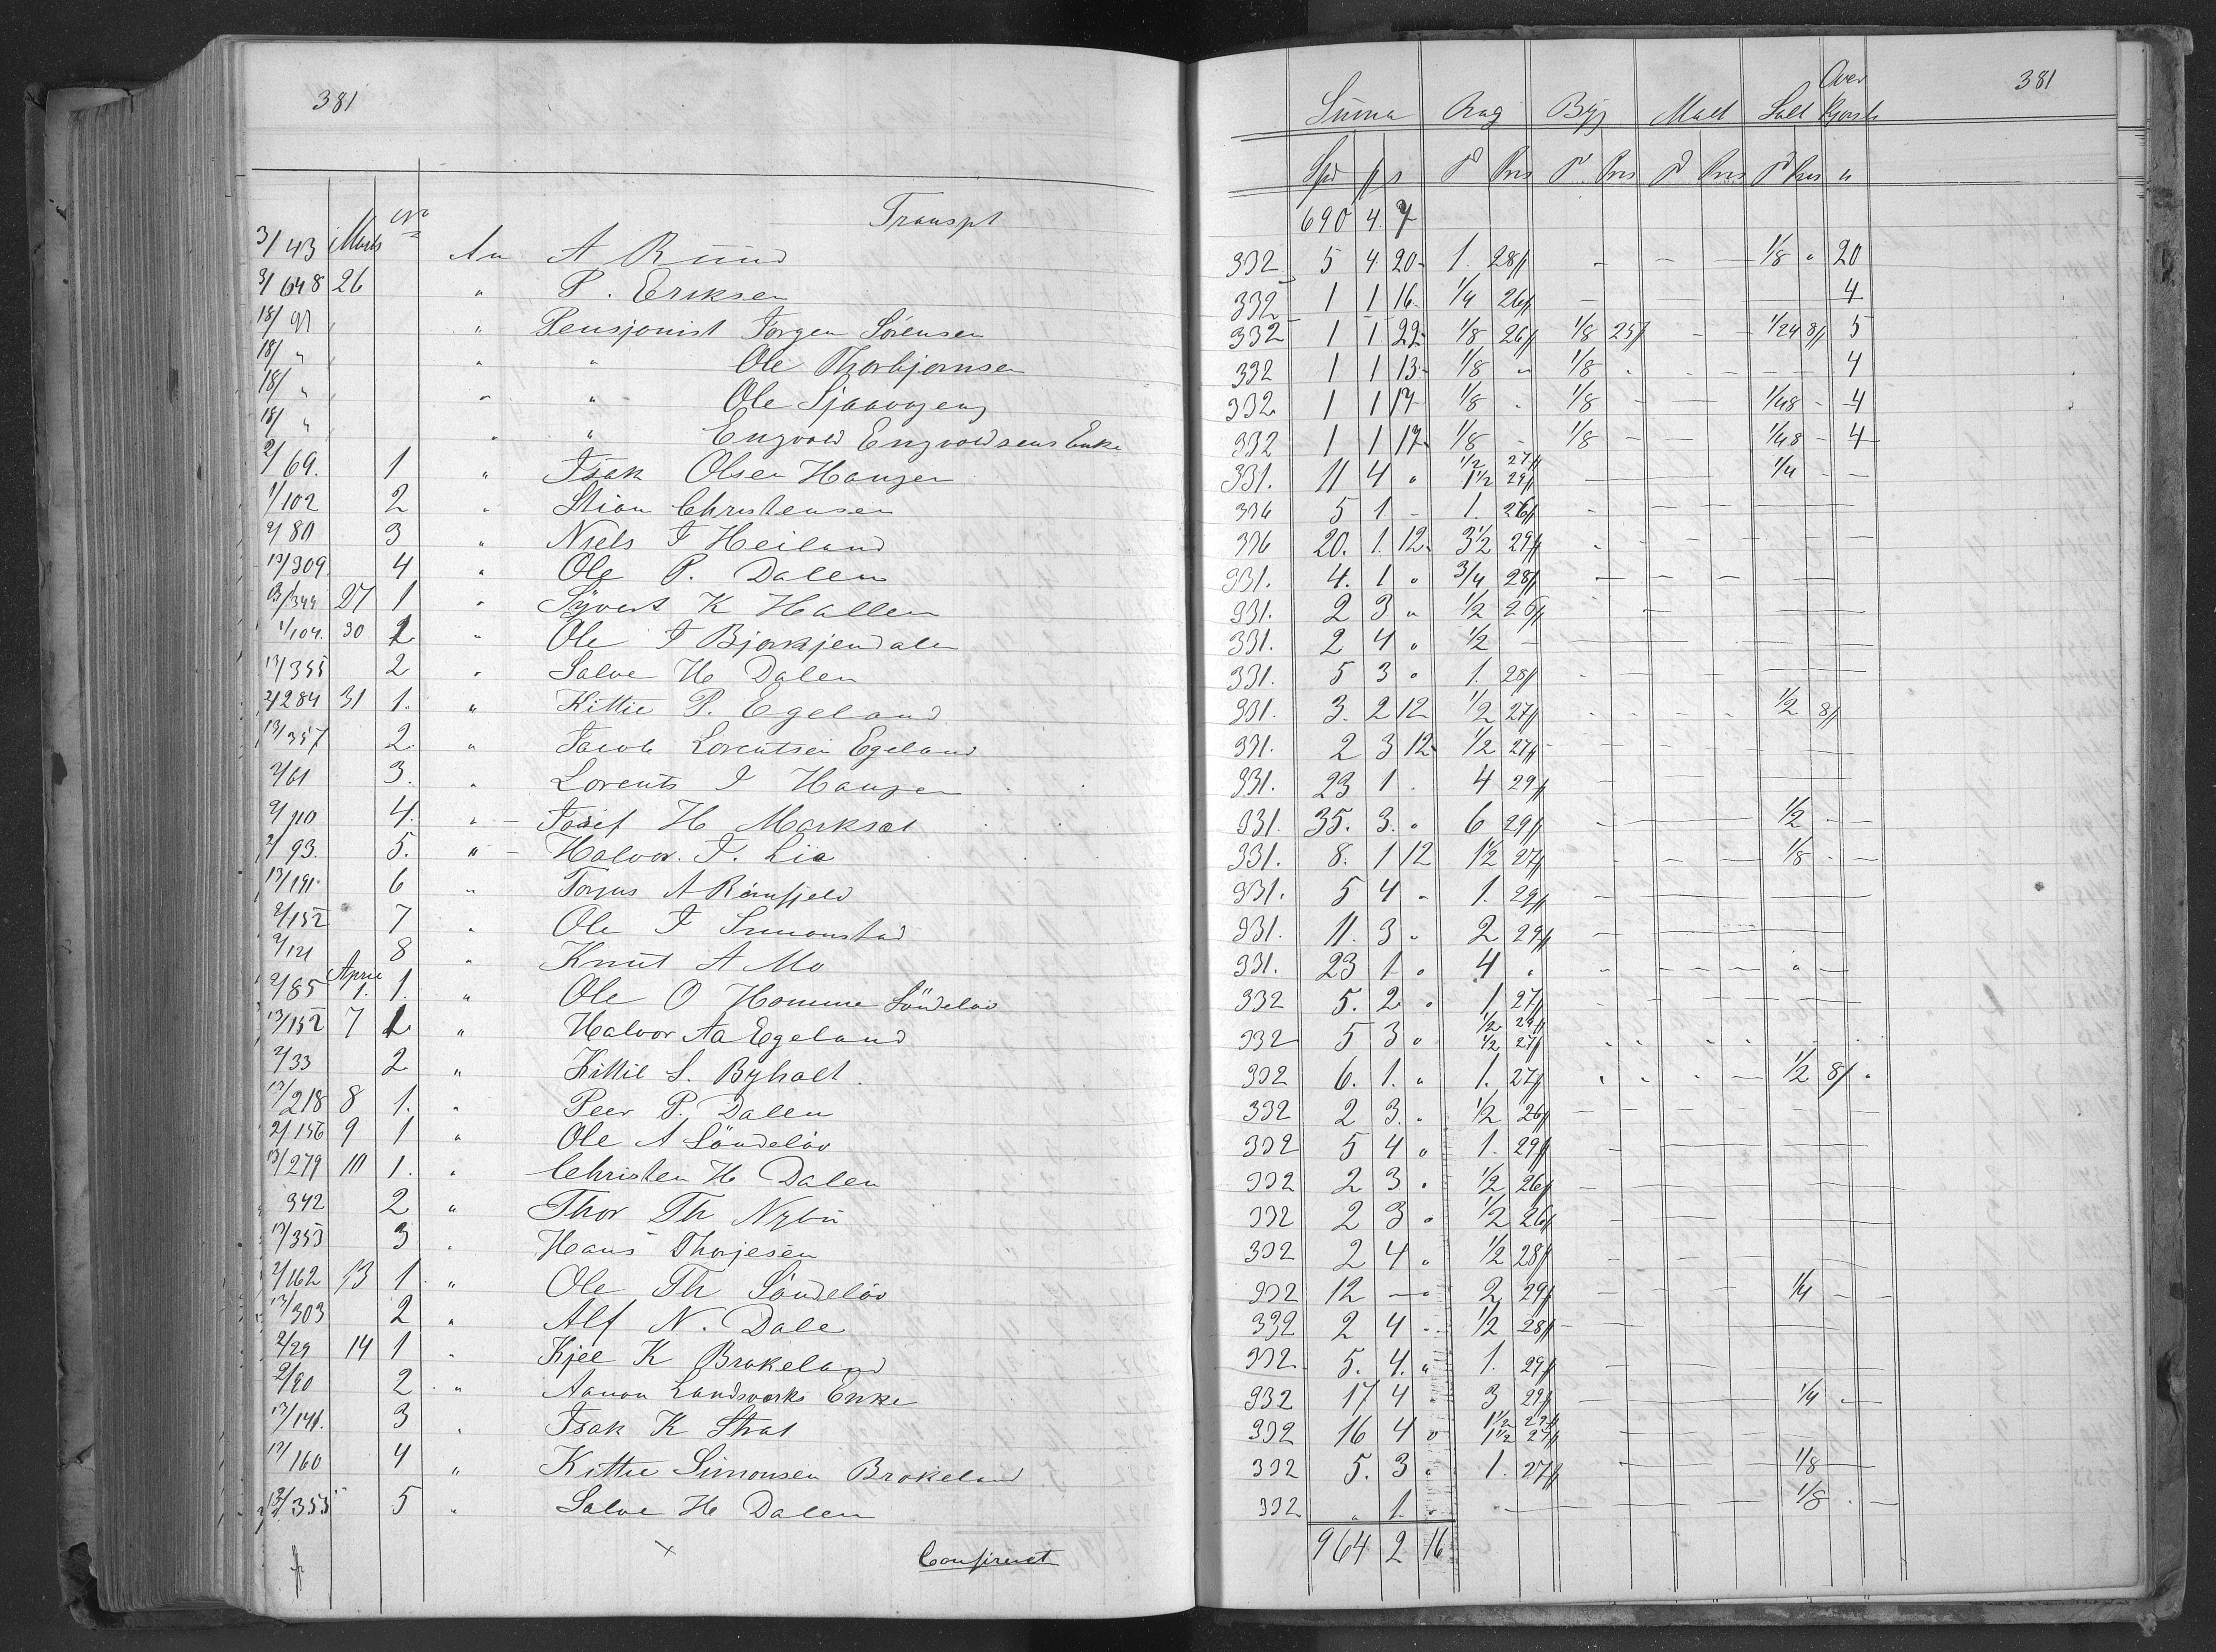 381
381
Over
Suma Rug Byg Malt Salt
Spd Pris Pris Pris Pris
Transpt 690 4 7
3/43 Marts No An A Ruud 332 5 4 20 1 28 - - - 1/8 " 20
3/648 26 " P. Eriksen 332 1 1 16 1/4 26 - - 4
18/91 " Pensjonist Jörgen Sörensen 332 1 1 22 1/8 26 1/8 25 - 1/24 8 5
18/ " " " Ole Thorbjørnsen 332 1 1 13 1/8 " 1/8 - - 4
18/ " " " Ole 332 1 1 17 1/8 - 1/8 - - 1/48 - 4
18/ " " " Engvold Engvoldsens Enke 332 1 1 17 1/8 - 1/8 - - 1/48 - 4
2/69. 1 " Isak Olsen Haugen 331. 11 4 " 1/2 27 1 1/2 29 - - 1/4 - -
1/102 2 " Stian Christensen 336 5 1 - 1. 26 - - -
2/80 3 " Niels J Heiland 336 20. 1. 12 3 1/2 29 - - -
13/309. 4 " Ole P. Dalen 331. 4. 1 " 3/4 28 - - -
13/344 27 1 " Syvert K Hallen 331. 2 3 " 1/2 26 - -
1/104. 30 1 " Ole J Bjorkjendalen 331. 2 4 " 1/2 - - -
13/355 2 " Salve H Dalen 331. 5 3 " 1. 28 - - -
2/284 31 1. " Kittil P. Egeland 331. 3. 2 12 1/2 27 - - - - 1/2 8
13/357 2. " Jacob Lorentsen Egeland 331. 2 3 12 1/2 27 - - -
2/61 3. " Lorents J Haugen 331. 23 1 . 4 29 - -
2/110 4. " - Josef H Marksæt 331. 35. 3. " 6 29 - - 1/2 - -
2/93. 5. " - Halvor. J. Lia 331. 8. 1 12 1 1/2 27 - - - 1/8 - -
13/191. 6 " Torjus A Römfjeld 331. 5 4 - 1. 29 - -
2/152 7 " Ole J Simonstad 331. 11. 3 " 2 29 - -
2/121 8 " Knut A Mo 331. 23 1 " 4 " - - - - " -
2/85 April 1. 1. " Ole O Homme Söndelöv 332 5. 2 " 1 27 - - -
13/152 7 1 " Halvor Aa Egeland 332 5 3 " 1/2 29 1/2 27 - - - -
2/33 2 " Kittil S. Byholt. 332 6. 1. " 1. 27 - - - - 1/2 8 "
13/218 8 1. " Peer P. Dalen 332 2 3. " 1/2 26 - - - -
2/156 9 1 " Ole A Söndelöv 332 5 4 " 1. 29 - - -
13/279 10 1. " Christen H Dalen 332 2 3 " 1/2 26 - -
342 2 " Thor Th Nybu 332 2 3 " 1/2 26 - -
13/353 3 " Hans Thorjesen 332 2 4 " 1/2 28 - -
2/162 13 1. " Ole Th Söndelöv 332 12 - " 2 29 - - - 1/4 - -
13/303 2 " Alf N. Dale 332 2 4 - 1/2 28 - - -
2/29 14 1 " Kjel K Brokeland 332 5. 4. " 1. 29 - -
2/90 2 " Aanon Landsverks Enke 332 17 4 " 3 29 - - 1/4 -
13/141. 3 " Isak K Strat 332 16 4 " 1 1/2 29 1 1/2 27 - -
13/160 4 " Kittil Simonsen Brokeland 332 5. 3 " 1. 27 - - 1/8 -
13/355 5 " Salve H Dalen 332 " 1 " - - - - 1/8 - -
x Confireret 964 2 16